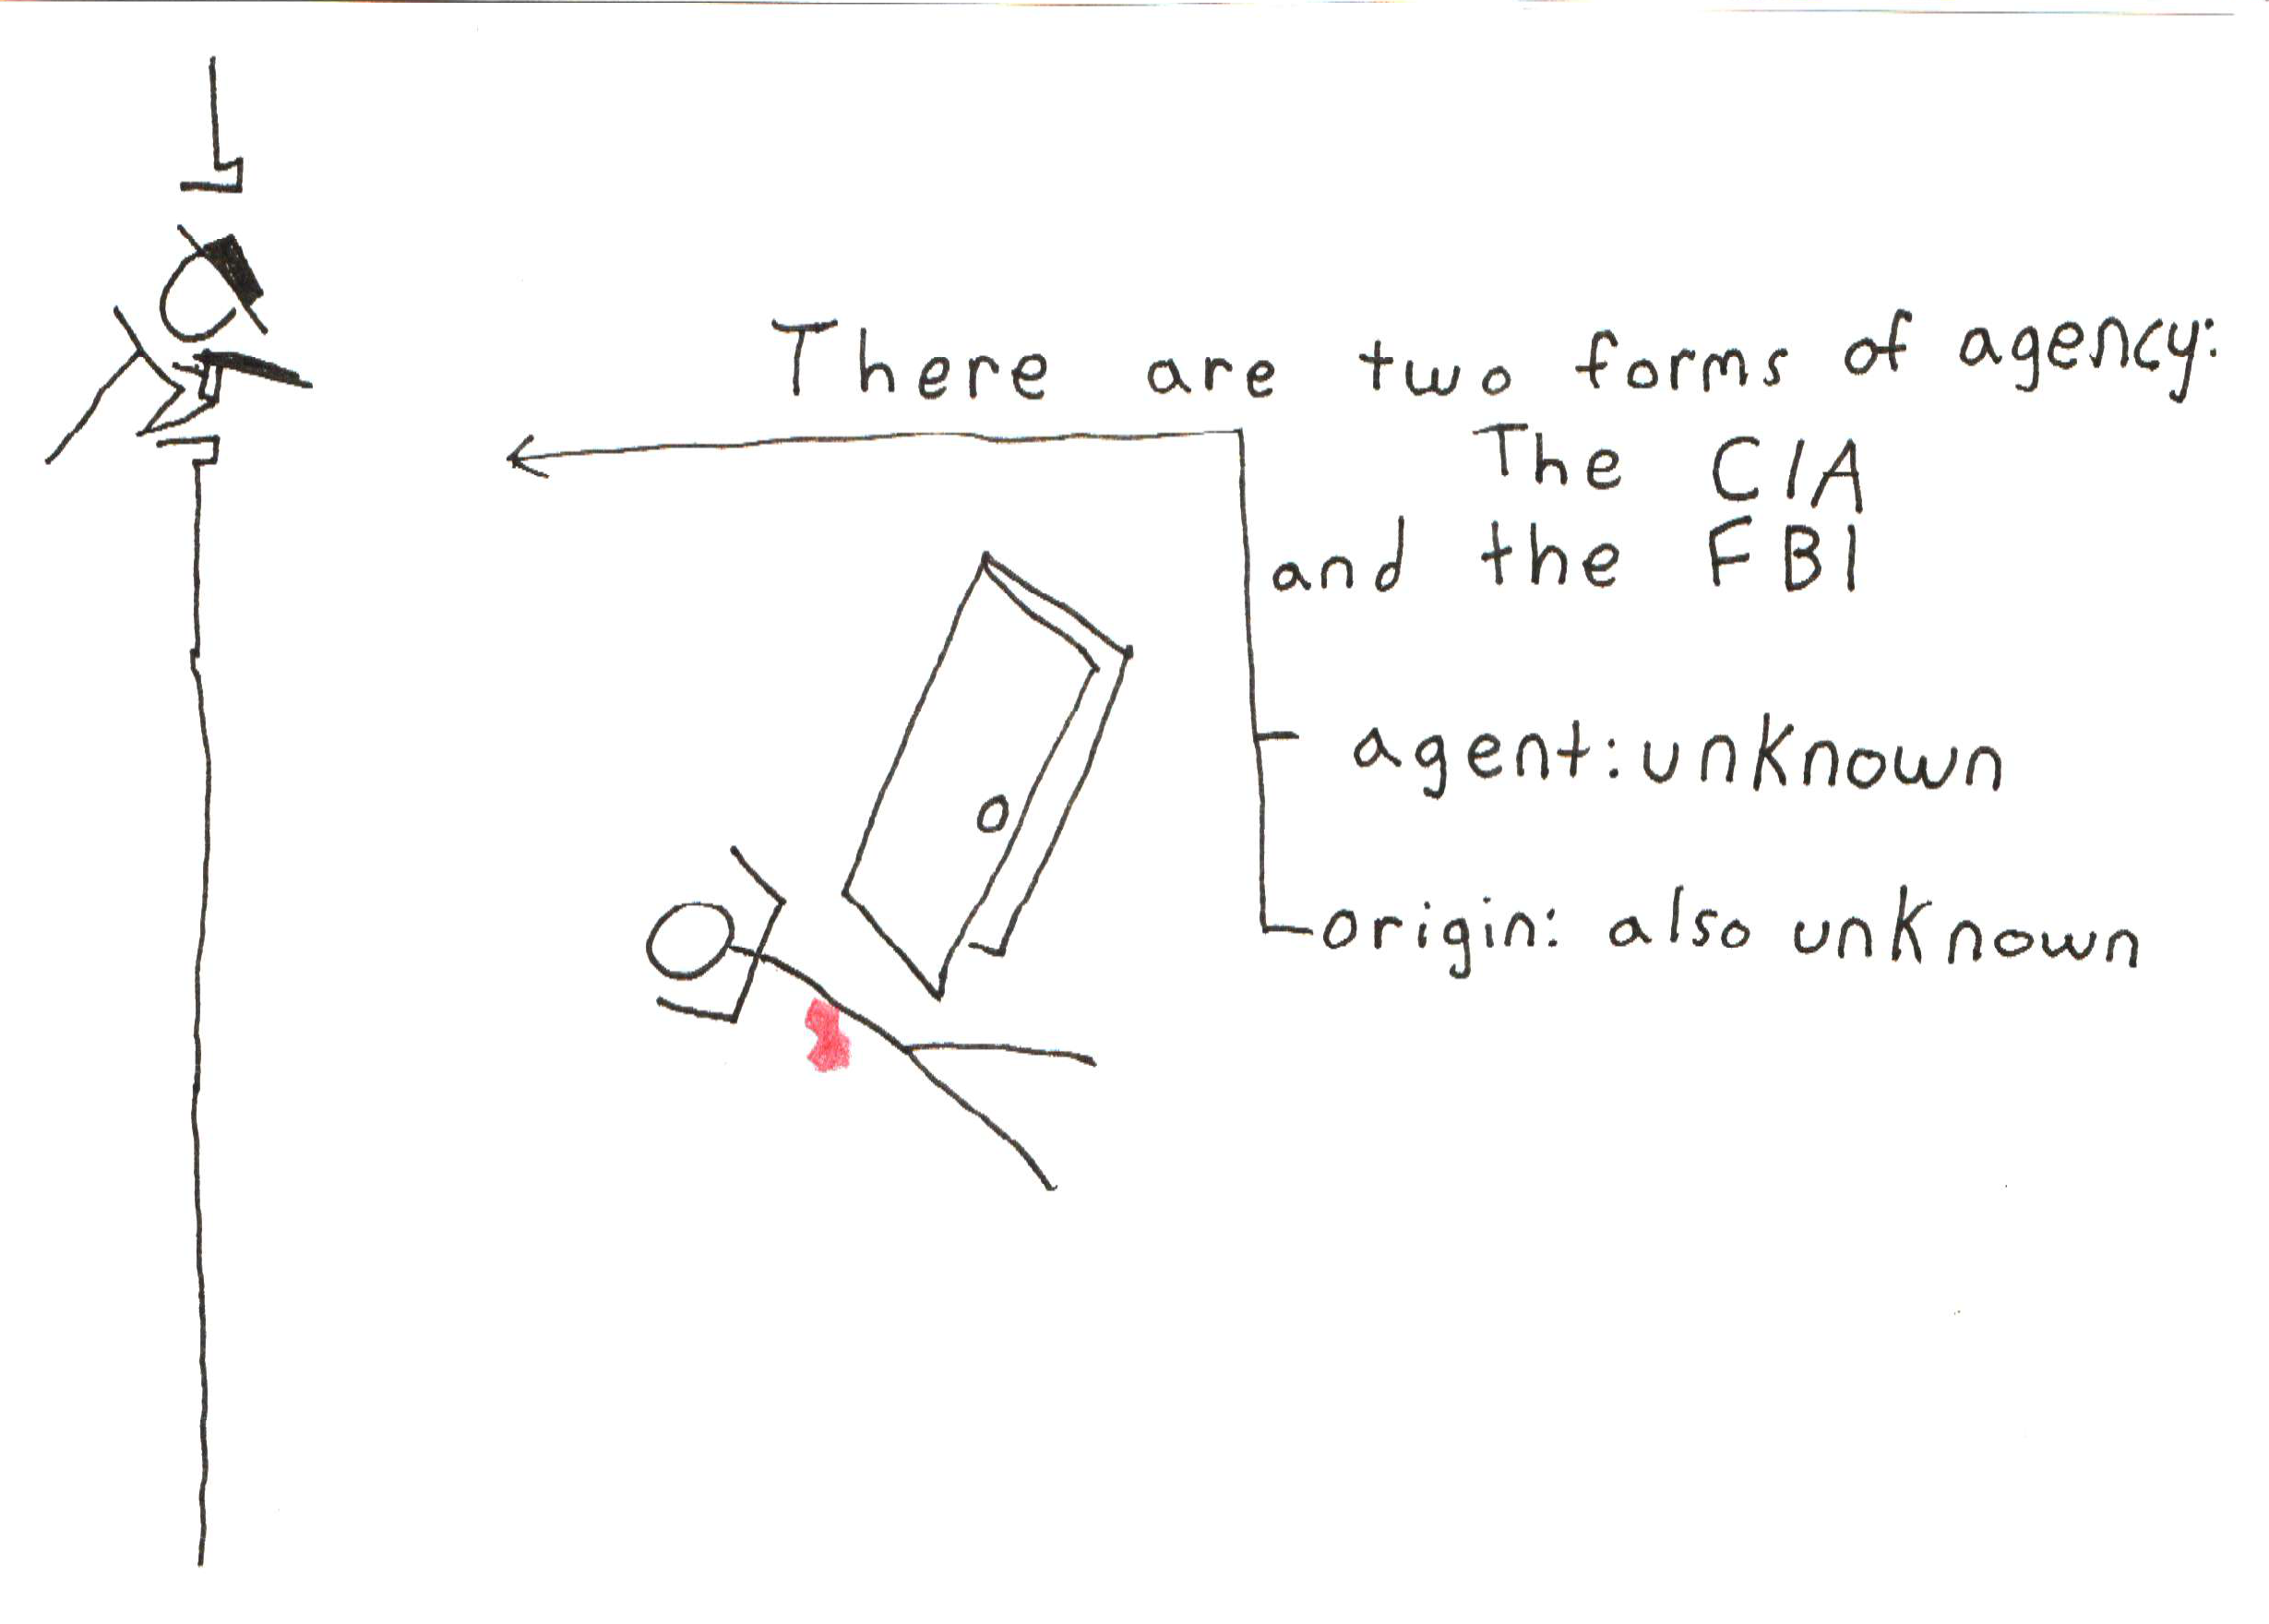 There are two forms of agency:
The CIA
and the FBI
agent: unknown
origin: also unknown